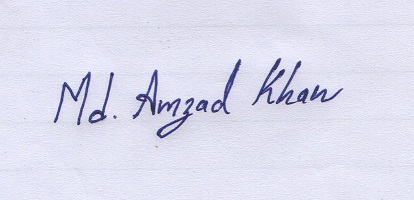 Md. Amzad Khan